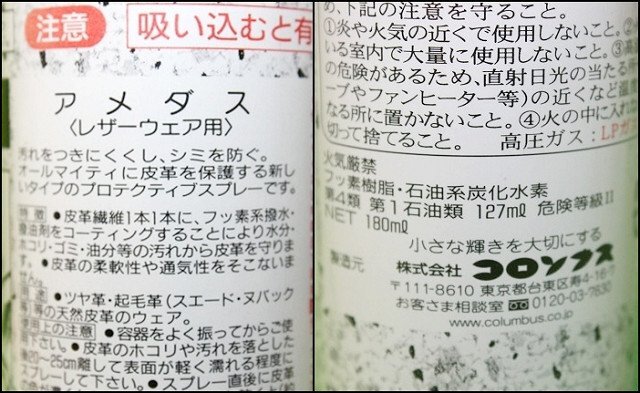 注意
吸い込むと有
アメダス
〈レザーウェア用〉
汚れをつきにくくし、シミを防ぐ。
オールマイティに皮革を保護する新し
いタイプのプロテクティブスプレーです。
特徴 ●皮革繊維1本1本に、フッ素系撥水・
撥油剤をコーティングすることにより水分・
ホコリ・ゴミ・油分等の汚れから皮革を守りま
す。●皮革の柔軟性や通気性をそこないま
せん。
用途 ●ツヤ革・起毛革(スエード・ヌバック
等)等の天然皮革のウェア。
使用上の注意 ●容器をよく振ってからご使
用下さい。●皮革のホコリや汚れを落とした
後20〜25cm離して表面が軽く濡れる程度に
スプレーして下さい。●スプレー直後に皮革
め、下記の注意を守ること。
①炎や火気の近くで使用しないこと。②
いる室内で大量に使用しないこと。③高
の危険があるため、直射日光の当たる所
ーブやファンヒーター等)の近くなど温度
なる所に置かないこと。④火の中に入れ
切って捨てること。 高圧ガス:LPガ
火気厳禁
フッ素樹脂・石油系炭化水素
第4類 第1石油類 127ml 危険等級II
NET 180ml
小さな輝きを大切にする
製造元 株式会社 コロンブス
〒111-8610 東京都台東区寿4-16-7
お客さま相談室 0120-03-7830
www.columbus.co.jp